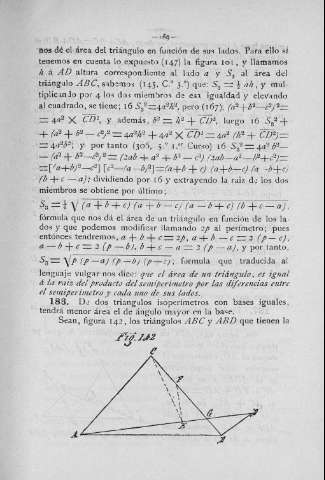 — 189 —
nos dé el área del triángulo en función de sus lados. Para ello si
tenemos en cuenta lo expuesto (147) la figura 101, y llamamos
h á AD altura correspondiente al lado a y S₂ al área del
triángulo ABC, sabemos (145, C.º 3.º) que: S₂ = ½ ah, y mul-
tiplicando por 4 los dos miembros de esa igualdad y elevando
al cuadrado, se tiene; 16 S₂² = 4a²h², pero (167), (a² + b² — c²)² =
= 4a² × CD², y además, b² = h² + CD², luego 16 S₂² +
+ (a² + b² — c²)² = 4a²h² + 4a² × CD² = 4a² (h² + CD²) =
= 4a²b²; y por tanto (306, 3.º 1.er Curso) 16 S₂² = 4a² b² —
— (a² + b² — c²)² = (2ab + a² + b² — c²) (2ab — a² — b² + c²) =
= [(a+b)² — c²] [c² — (a — b)²] = (a+b + c) (a+b — c) (a — b+c)
(b + c — a); dividiendo por 16 y extrayendo la raíz de los dos
miembros se obtiene por último;
S₂ = ¼ √ (a + b + c) (a + b — c) (a — b + c) (b + c — a),
fórmula que nos dá el área de un triángulo en función de los la-
dos y que podemos modificar llamando 2p al perímetro; pues
entónces tendremos, a + b + c = 2p, a + b — c = 2 (p — c),
a — b + c = 2 (p — b), b + c — a = 2 (p — a), y por tanto,
S₂ = √p (p — a) (p — b) (p — c); fórmula que traducida al
lenguaje vulgar nos dice: que el área de un triángulo, es igual
á la raíz del producto del semiperímetro por las diferencias entre
el semiperímetro y cada uno de sus lados.
183. De dos triángulos isoperímetros con bases iguales,
tendrá menor área el de ángulo mayor en la base.
Sean, figura 142, los triángulos ABC y ABD que tienen la
Fig. 142
C
F
G
D
E
A
B